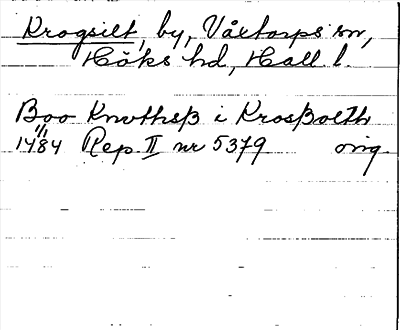 Krogsilt, by, Våxtorps sn,
Höks hd, Hall l.
Boo Knuthsß i Krosßolth
1484 Rep II nr 5379 orig.